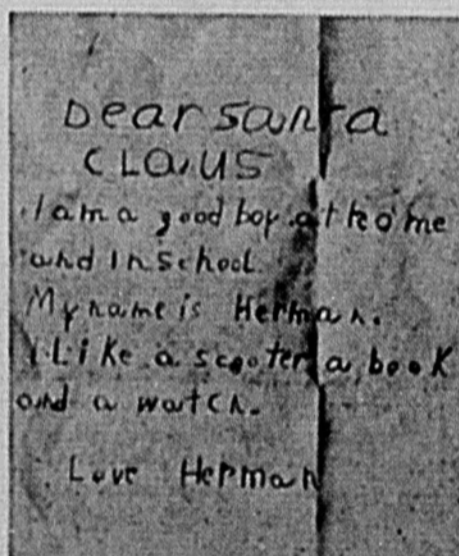 Dear santa
CLAUS
I am a good boy at home
and in school.
My name is Herman.
I Like a scooter a book
and a watch.
Love Herman